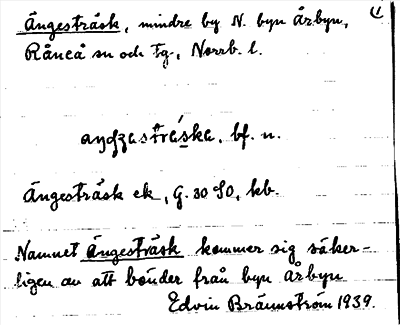 Ängesträsk, mindre by N. byn Årbyn, 1
Råneå sn och tg., Norrb. l.
aŋʒastráska, bf. n.
Ängesträsk ek, G. 30 SO, kb.
Namnet Ängesträsk kommer sig säker-
ligen av att bönder från byn Årbyn
Edvin Brännström 1939.